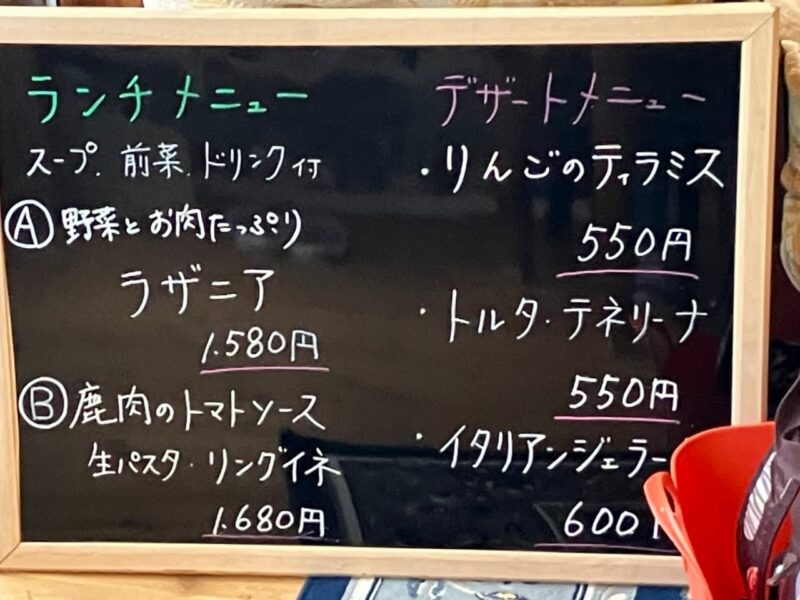 ランチメニュー
スープ. 前菜. ドリンク付
Ⓐ 野菜とお肉たっぷり
ラザニア
1.580円
Ⓑ 鹿肉のトマトソース
生パスタ・リングイネ
1.680円
デザートメニュー
・りんごのティラミス
550円
・トルタ・テネリーナ
550円
・イタリアンジェラー
600